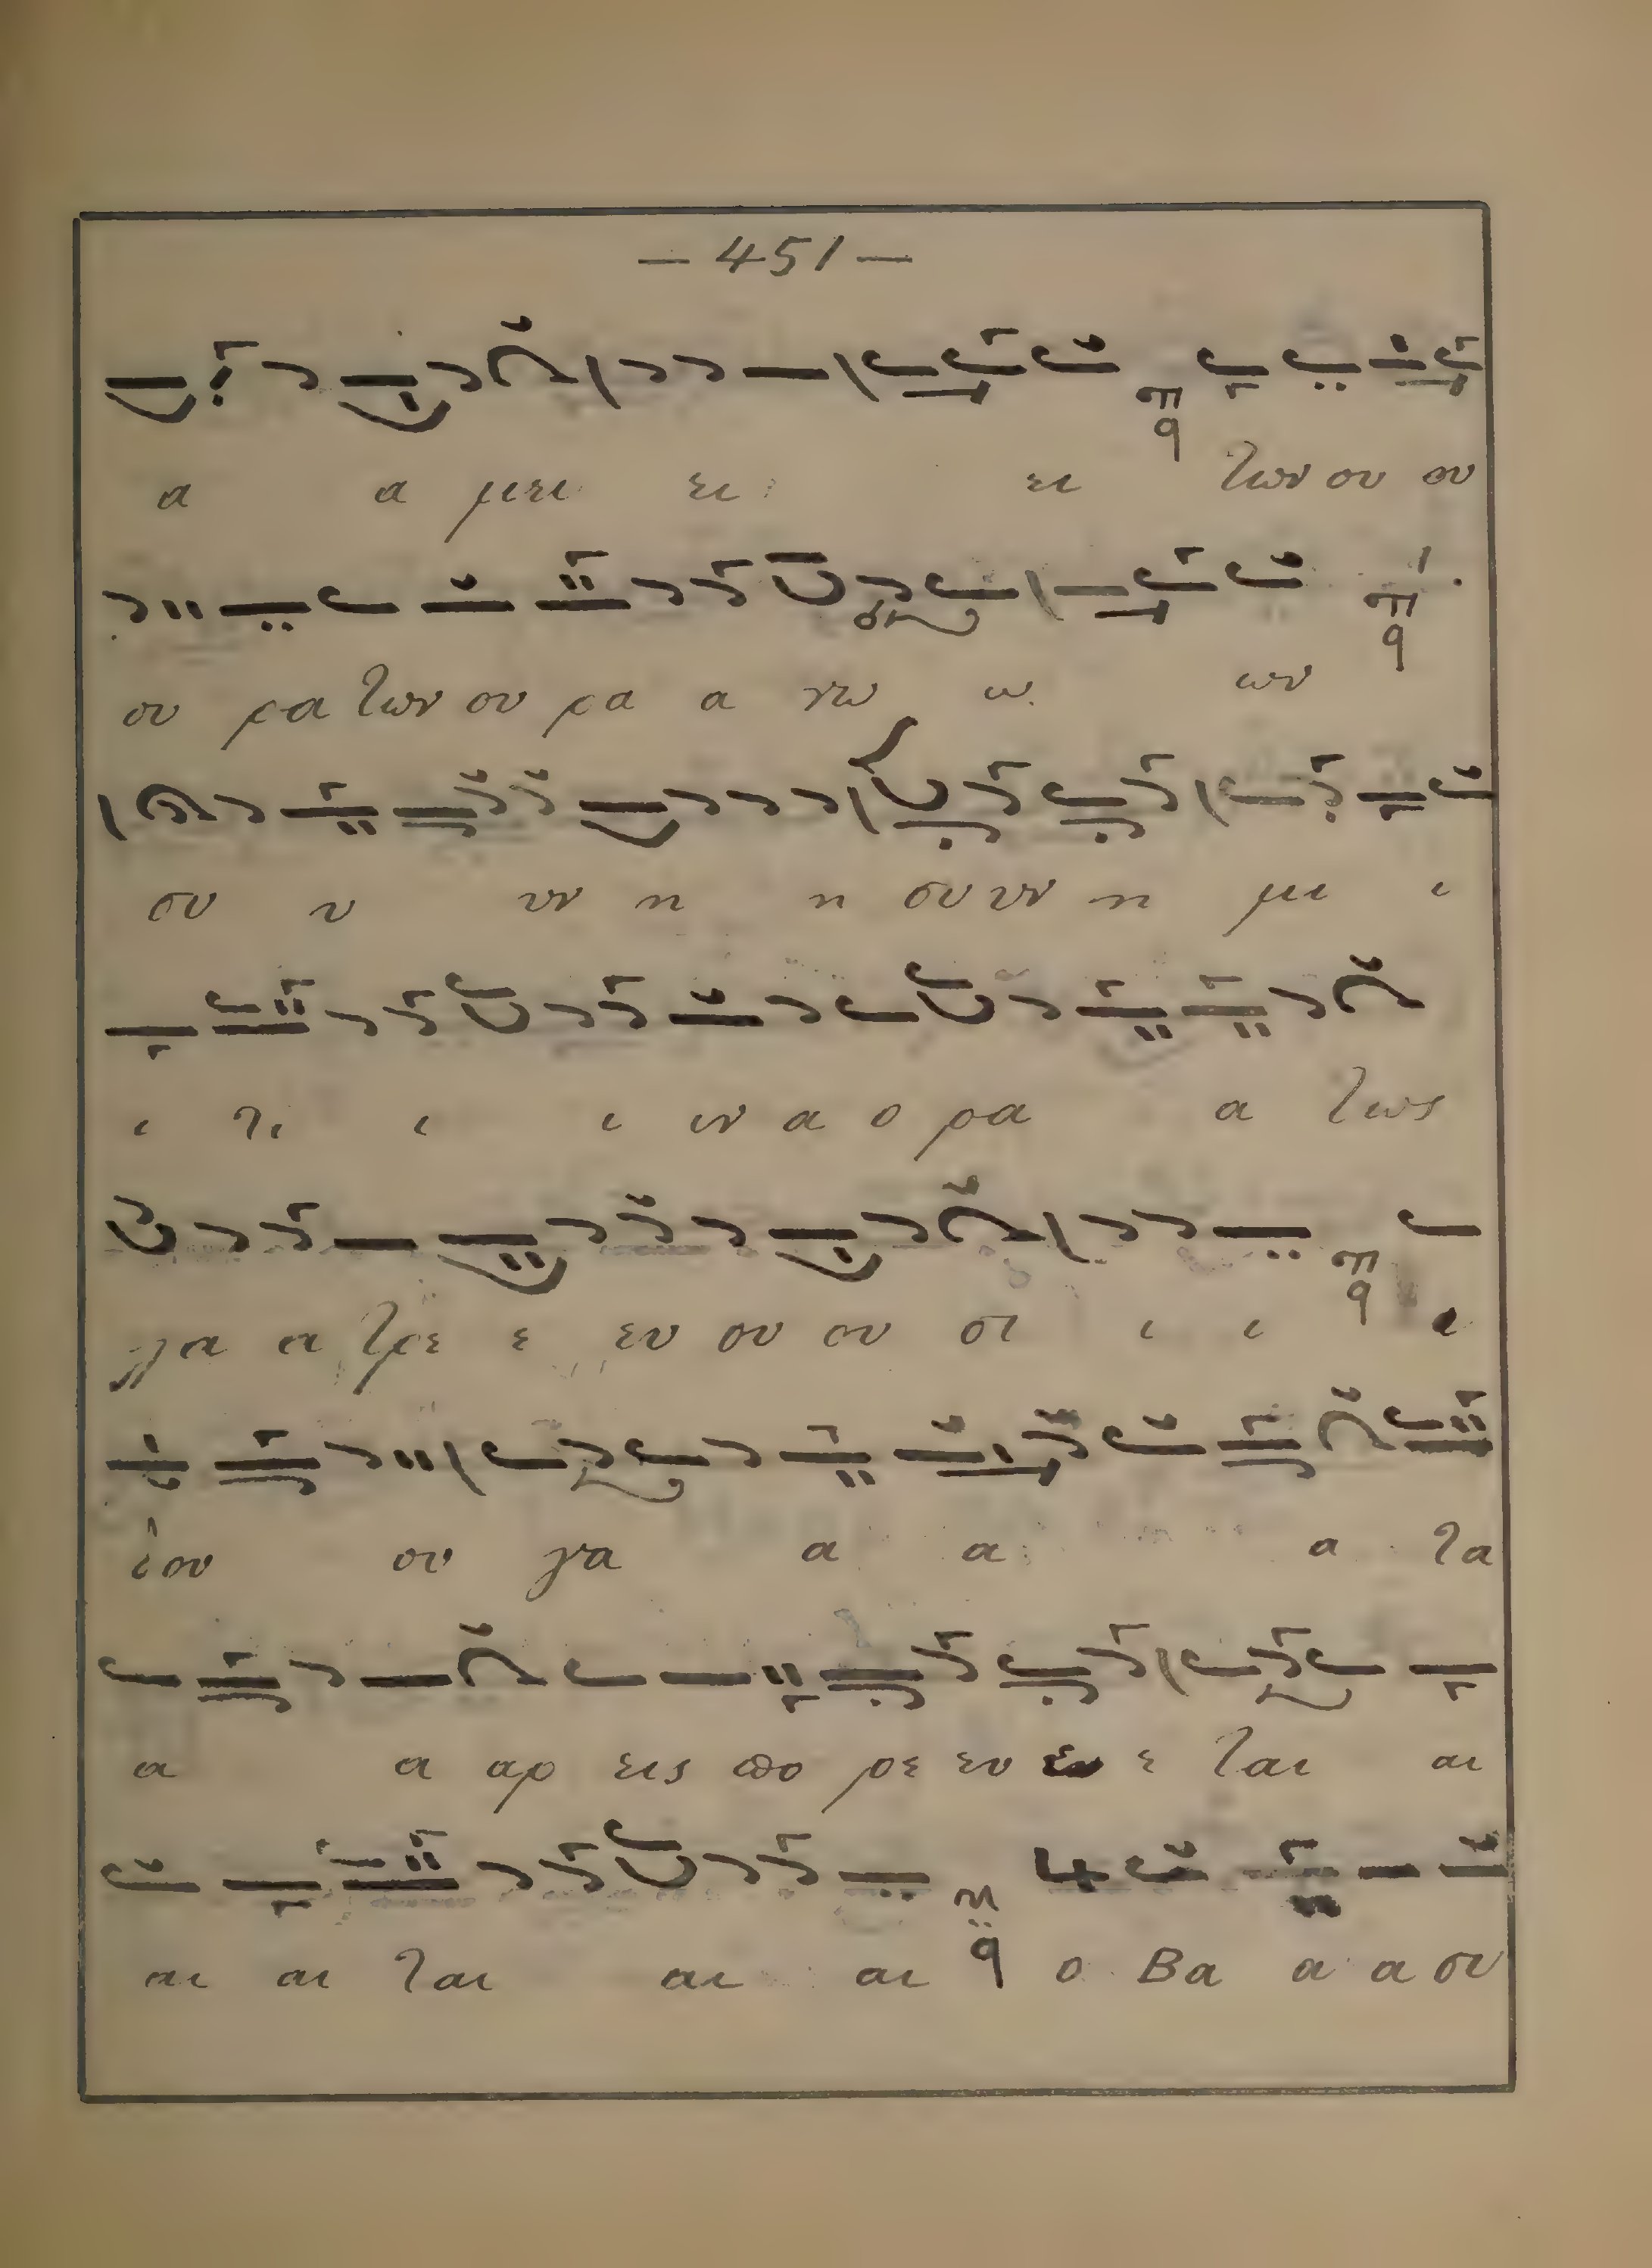 — 451 —
α α μει ει ει των ου ου
ου ρα των ου ρα α νω ω ων
συ υ υν η η συ υν η μι ι
ι τι ι ι ιν α ο ρα α τως
λα α τρε ε ευ ου ου σι ι ι ι
ι ου ου γα α α α τα
α α αρ εις πο ρε ευ ευ ε ται αι
αι αι ται αι αι ο Βα α α σι